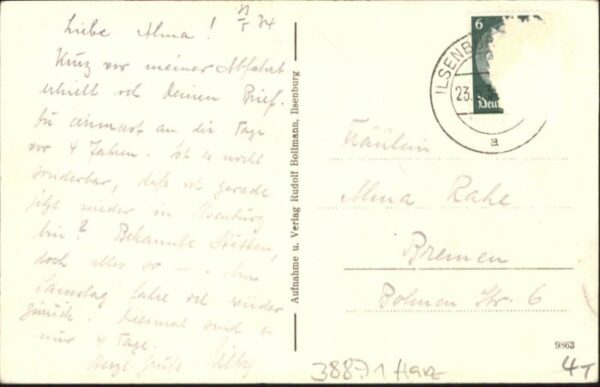 23/5 34
Liebe Alma!
Kurz vor meiner Abfahrt
erhielt ich Deinen Brief.
Du erinnerst an die Tage
vor 4 Jahren. Ist es nicht
sonderbar, daß ich gerade
jetzt wieder in Ilsenburg
bin? Bekannte Stätten,
doch alles so —. Am
Samstag fahre ich wieder
zurück. Diesmal sind es
nur 4 Tage.
Herzl. Gruß
Aufnahme u. Verlag Rudolf Bollmann, Ilsenburg
6
Deut
ILSENBU
23.
a
Fräulein
Alma Rahe
Bremen
Bohmen Str. 6
9863
38871 Harz
4T